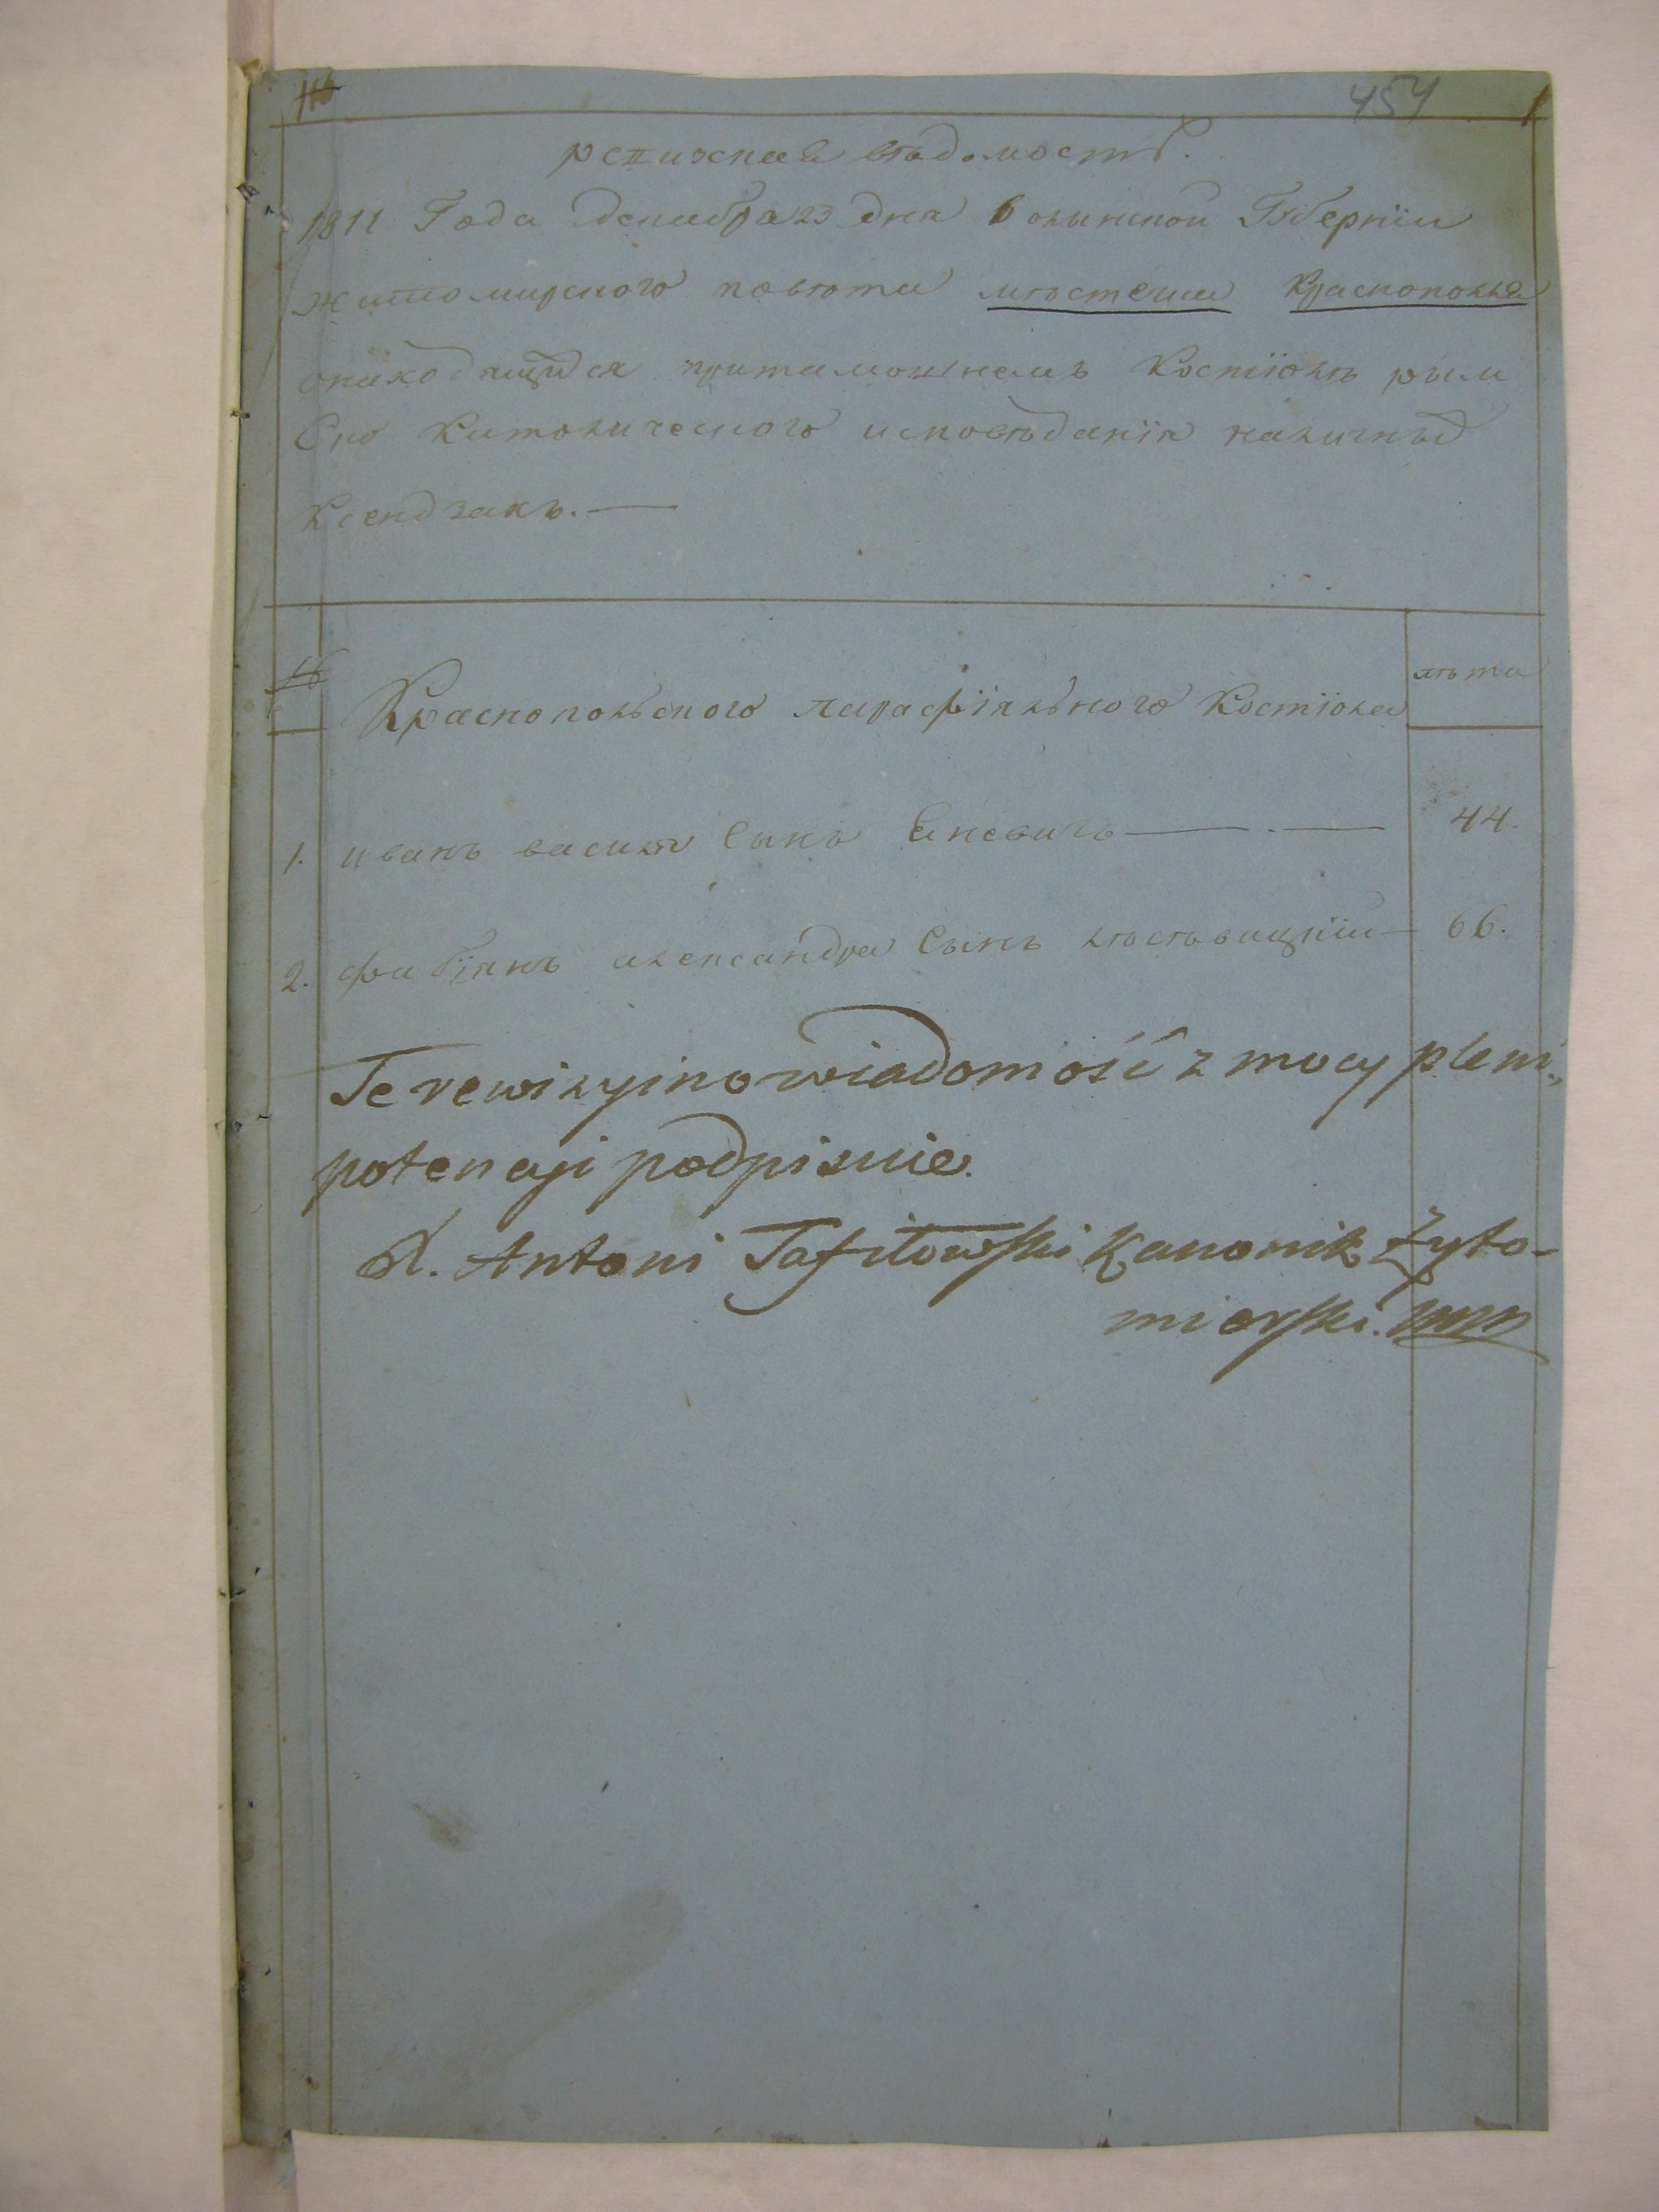 454
вѣдомостъ.
1811 Года декабра 23 дня волынской Губернїи
житомирского повѣта мѣстечка Краснополя
онаходящихся притамошнемъ Костїолѣ рим
ско католического исповѣданїя наличныхъ
Ксендзахъ.
№ Краснопольского парафїяльного Костїола лѣта
1. иванъ василя Сынъ 44.
2. фабїянъ александра Сынъ 66.
Te rewizyino wiadomość z mocy pleni„
potencyi podpisuie.
X. Antoni Kanonik Żyto-
mierski. mpp